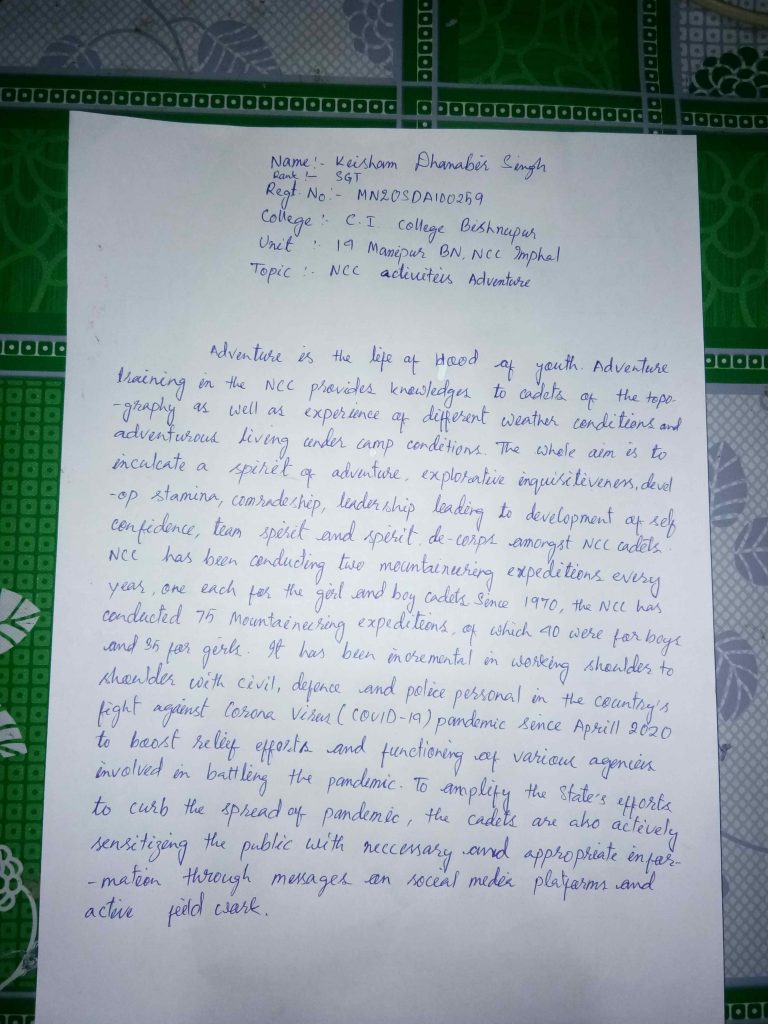 Name:- Keisham Dhanabir Singh
Rank :- SGT
Regt. No:- MN20SDA100259
College :- C.I. College Bishnupur
Unit :- 19 Manipur BN, NCC Imphal
Topic :- NCC activitēis Adventure
Adventure is the life of blood of youth. Adventure
training in the NCC provides knowledges to cadets of the topo-
-graphy as well as experience of different weather conditions and
adventurous living under camp conditions. The whole aim is to
inculcate a spirit of adventure, explorative inquisitiveness, devel
-op stamina, comradeship, leadership leading to development of self
confidence, team spirit and spirit de-corps amongst NCC cadets.
NCC has been conducting two mountaineering expeditions every
year, one each for the girl and boy cadets. Since 1970, the NCC has
conducted 75 Mountaineering expeditions, of which 40 were for boys
and 35 for girls. It has been incremental in working shoulder to
shoulder with civil, defence and police personal in the country's
fight against Corona Virus (COVID-19) pandemic since Aprill 2020
to boost relief efforts and functioning of various agencies
involved in battling the pandemic. To amplify the State's efforts
to curb the spread of pandemic, the cadets are also actively
sensitizing the public with neccessary and appropriate infor-
-mation through messages on social media platforms and
active feild work.